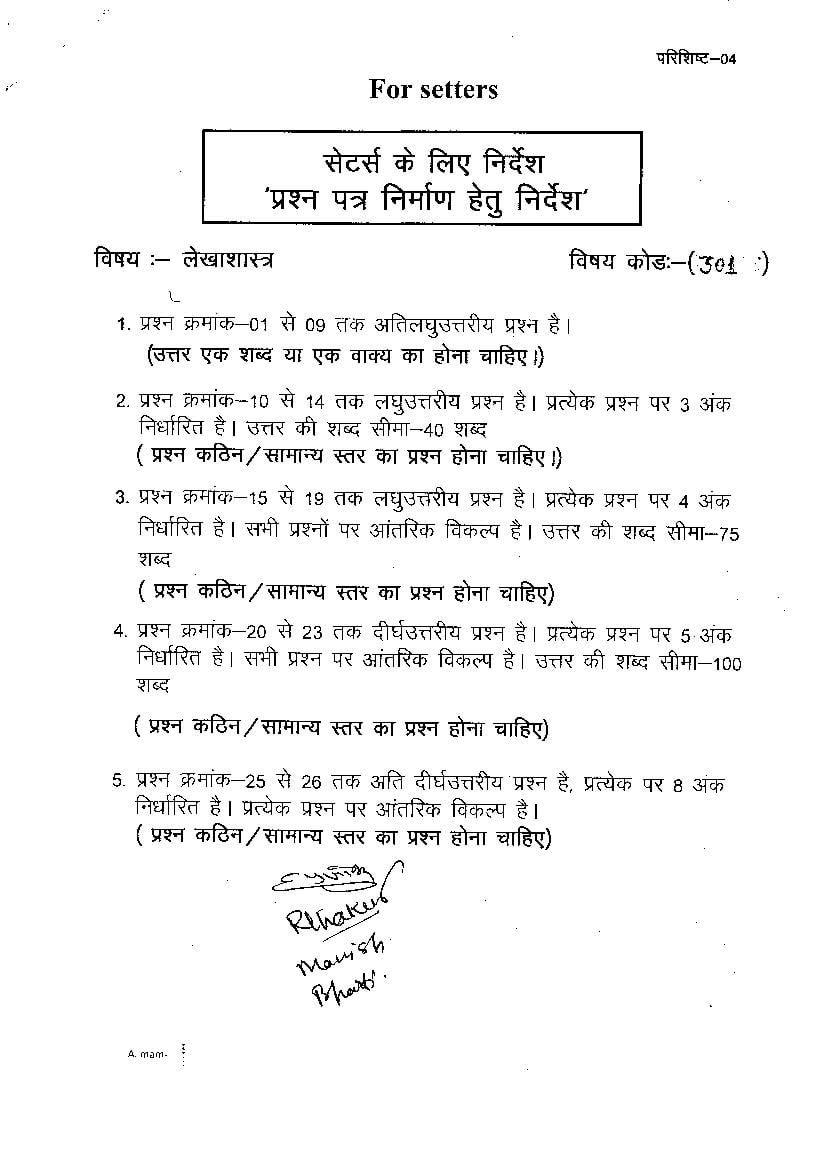 परिशिष्ट–04
For setters
सेटर्स के लिए निर्देश
'प्रश्न पत्र निर्माण हेतु निर्देश'
विषय :– लेखाशास्त्र विषय कोडः–(301 )
1. प्रश्न क्रमांक–01 से 09 तक अतिलघुउत्तरीय प्रश्न है।
(उत्तर एक शब्द या एक वाक्य का होना चाहिए।)
2. प्रश्न क्रमांक–10 से 14 तक लघुउत्तरीय प्रश्न है। प्रत्येक प्रश्न पर 3 अंक
निर्धारित है। उत्तर की शब्द सीमा–40 शब्द
( प्रश्न कठिन/सामान्य स्तर का प्रश्न होना चाहिए।)
3. प्रश्न क्रमांक–15 से 19 तक लघुउत्तरीय प्रश्न है। प्रत्येक प्रश्न पर 4 अंक
निर्धारित है। सभी प्रश्नों पर आंतरिक विकल्प है। उत्तर की शब्द सीमा–75
शब्द
( प्रश्न कठिन/सामान्य स्तर का प्रश्न होना चाहिए)
4. प्रश्न क्रमांक–20 से 23 तक दीर्घउत्तरीय प्रश्न है। प्रत्येक प्रश्न पर 5 अंक
निर्धारित है। सभी प्रश्न पर आंतरिक विकल्प है। उत्तर की शब्द सीमा–100
शब्द
( प्रश्न कठिन/सामान्य स्तर का प्रश्न होना चाहिए)
5. प्रश्न क्रमांक–25 से 26 तक अति दीर्घउत्तरीय प्रश्न है, प्रत्येक पर 8 अंक
निर्धारित है। प्रत्येक प्रश्न पर आंतरिक विकल्प है।
( प्रश्न कठिन/सामान्य स्तर का प्रश्न होना चाहिए)
RThakur
Manish
Bharti
A. mam-